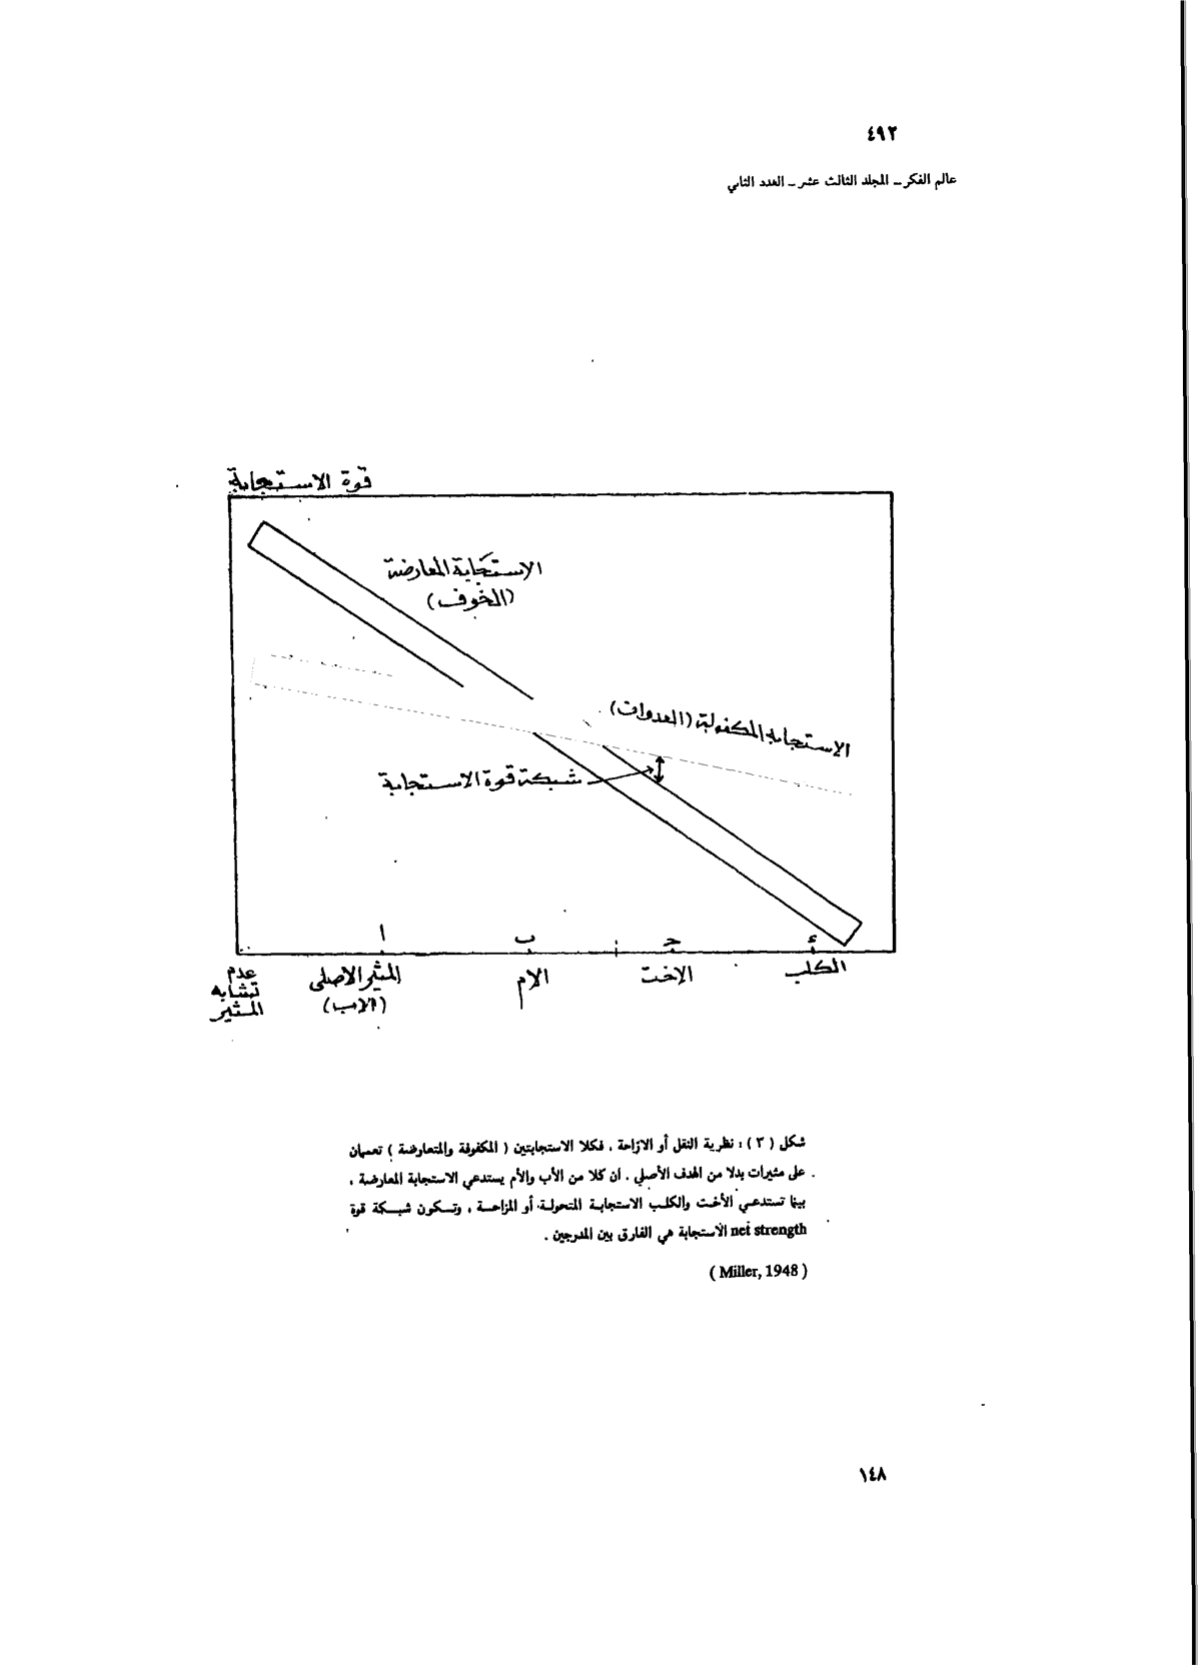 ٤٩٢
عالم الفكر - المجلد الثالث عشر - العدد الثاني
قوة الاستجابة
الاستجابة المعارضة
(الخوف)
الاستجابة المكفولة (العدوان)
شبكة قوة الاستجابة
ا
ب
ج
ء
عدم
تشابه
المثير
المثير الاصلى
(الاب)
الام
الاخت
الكلب
شكل ( ٣ ) : نظرية النقل أو الازاحة . فكلا الاستجابتين ( المكفوفة والمتعارضة ) تعممان
على مثيرات بدلا من الهدف الأصلي . ان كلا من الأب والأم يستدعي الاستجابة المعارضة ،
بينما تستدعي الأخت والكلب الاستجابة المتحولة أو المزاحة ، وتكون شبكة قوة
net strength الاستجابة هي الفارق بين المدرجين .
( Miller, 1948 )
١٤٨